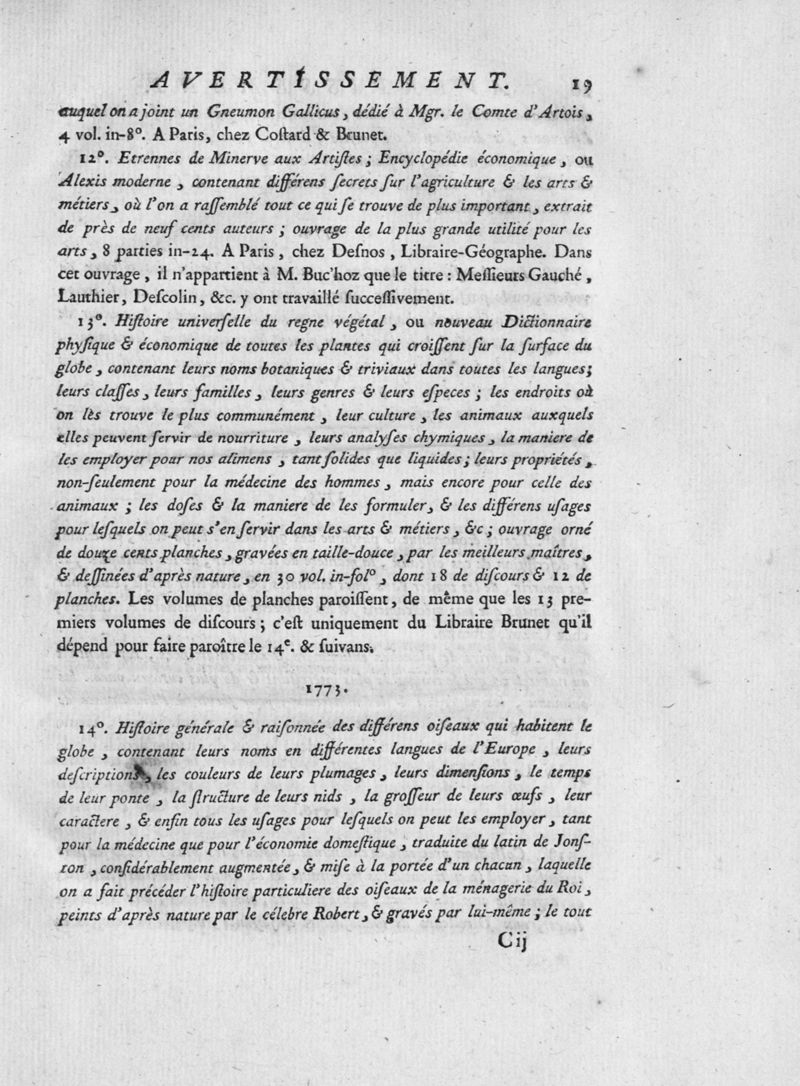 AVERTISSEMENT. 19
auquel on a joint un Gneumon Gallicus, dédié à Mgr. le Comte d'Artois,
4 vol. in-8°. A Paris, chez Coſtard & Brunet.
12°. Etrennes de Minerve aux Artiſtes ; Encyclopédie économique, ou
Alexis moderne, contenant différens ſecrets ſur l'agriculture & les arts &
métiers, où l'on a raſſemblé tout ce qui ſe trouve de plus important, extrait
de près de neuf cents auteurs ; ouvrage de la plus grande utilité pour les
arts, 8 parties in-24. A Paris, chez Deſnos, Libraire-Géographe. Dans
cet ouvrage, il n'appartient à M. Buc'hoz que le titre : Meſſieurs Gauché,
Lauthier, Deſcolin, &c. y ont travaillé ſucceſſivement.
13°. Hiſtoire univerſelle du regne végétal, ou nouveau Dictionnaire
phyſique & économique de toutes les plantes qui croiſſent ſur la ſurface du
globe, contenant leurs noms botaniques & triviaux dans toutes les langues ;
leurs claſſes, leurs familles, leurs genres & leurs eſpeces ; les endroits où
on lès trouve le plus communément, leur culture, les animaux auxquels
elles peuvent ſervir de nourriture, leurs analyſes chymiques, la maniere de
les employer pour nos alimens, tant ſolides que liquides ; leurs propriétés,
non-ſeulement pour la médecine des hommes, mais encore pour celle des
animaux ; les doſes & la maniere de les formuler, & les différens uſages
pour leſquels on peut s'en ſervir dans les arts & métiers, &c ; ouvrage orné
de douze cents planches, gravées en taille-douce, par les meilleurs maîtres,
& deſſinées d'après nature, en 30 vol. in-fol°, dont 18 de diſcours & 12 de
planches. Les volumes de planches paroiſſent, de même que les 13 pre-
miers volumes de diſcours ; c'eſt uniquement du Libraire Brunet qu'il
dépend pour faire paroître le 14e. & ſuivans.
1773.
14°. Hiſtoire générale & raiſonnée des différens oiſeaux qui habitent le
globe, contenant leurs noms en différentes langues de l'Europe, leurs
deſcriptions, les couleurs de leurs plumages, leurs dimenſions, le temps
de leur ponte, la ſtructure de leurs nids, la groſſeur de leurs œufs, leur
caractere, & enfin tous les uſages pour leſquels on peut les employer, tant
pour la médecine que pour l'économie domeſtique, traduite du latin de Jonſ-
ton, conſidérablement augmentée, & miſe à la portée d'un chacun, laquelle
on a fait précéder l'hiſtoire particuliere des oiſeaux de la ménagerie du Roi,
peints d'après nature par le célebre Robert, & gravés par lui-même ; le tout
Cij